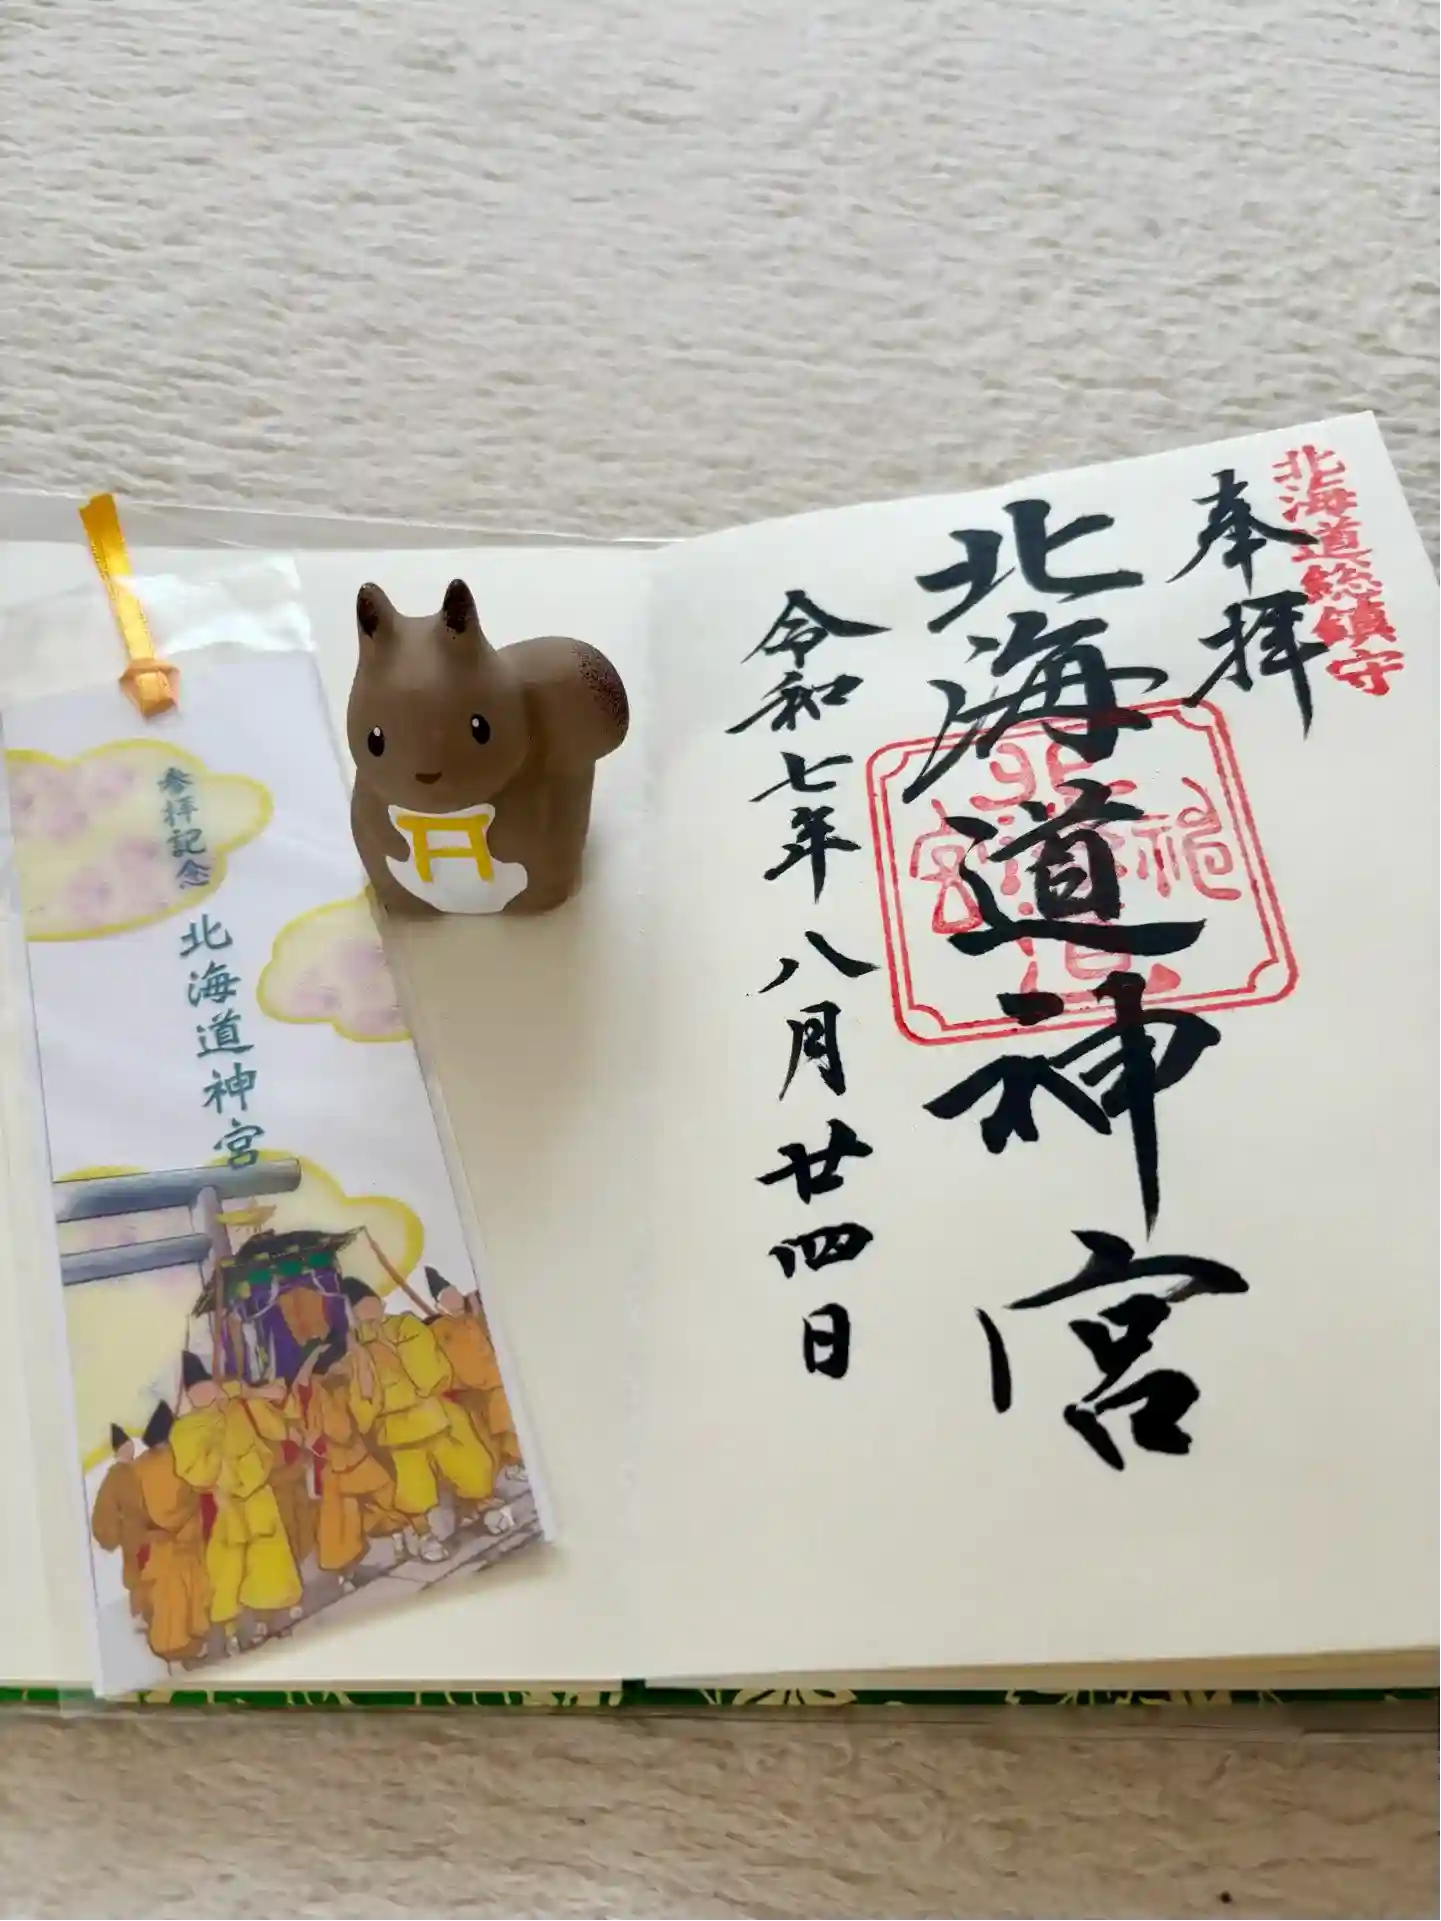 北海道総鎮守
奉拝
北海道神宮
令和七年八月廿四日
参拝記念
北海道神宮